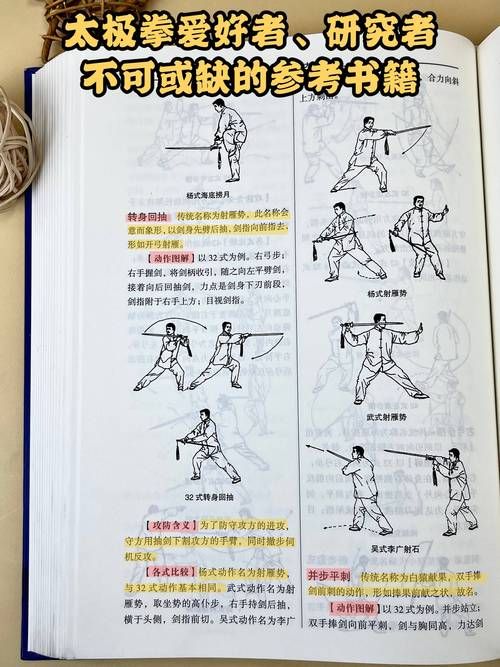 太极拳爱好者、研究者
不可或缺的参考书籍
杨式海底捞月
转身回抽 传统名称为射雁势,此名称会
意而象形,以剑身先劈后抽,剑指向前指去,
形如开弓射雁。
【动作图解】以32式为例。右弓步;
右手握剑,将剑柄收引,随之向左平劈剑,
接着向后回抽剑,力点是剑身下刃前段,
剑指附于右手上方;目视剑指。
32式转身回抽
【攻防含义】为了防守攻方的进攻,
守方用抽剑下割攻方的手臂,同时撤步伺
机反攻。
【各式比较】杨式动作名为射雁势,
与32式动作基本相同。武式动作名为射
雁势,取坐势的高仆步,右手持剑后抽,
横于头侧,剑指前切。吴式动作名为李广
合力向斜
杨式射雁势
武式射雁势
吴式李广射石
并步平刺 传统名称为白猿献果,双手捧
剑前刺的动作,形如捧果前献之状,故名。
【动作图解】以32式为例。并步站立;
双手捧剑向前平刺,剑与胸同高,力达剑